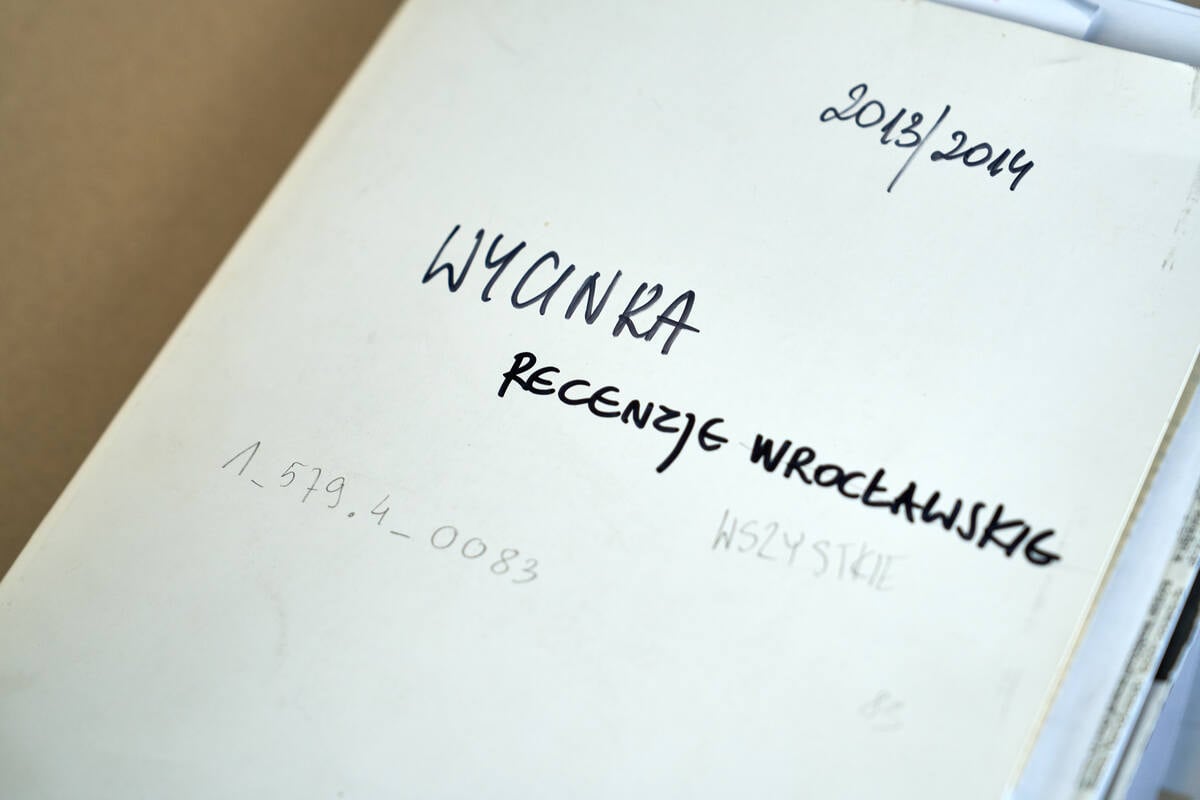 2013/2014
WYCINKA
RECENZJE WROCŁAWSKIE
WSZYSTKIE
1_579.4_0083
83